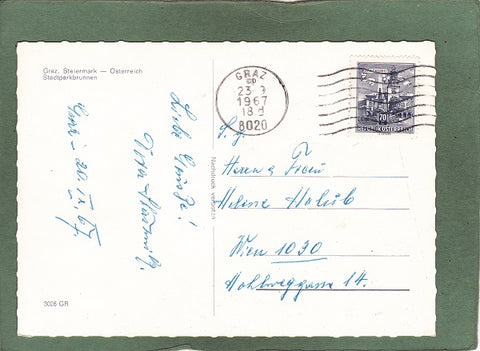 Graz, Steiermark — Österreich
Stadtparkbrunnen
Graz - 20. IX. 67.
Liebe Grüsse!
3026 GR
Nachdruck verboten
GRAZ
23-9
1967
18
8020
70
REPUBLIK ÖSTERREICH
S. g.
Herrn u. Frau
Helene Holub
Wien 1030
gasse 14.